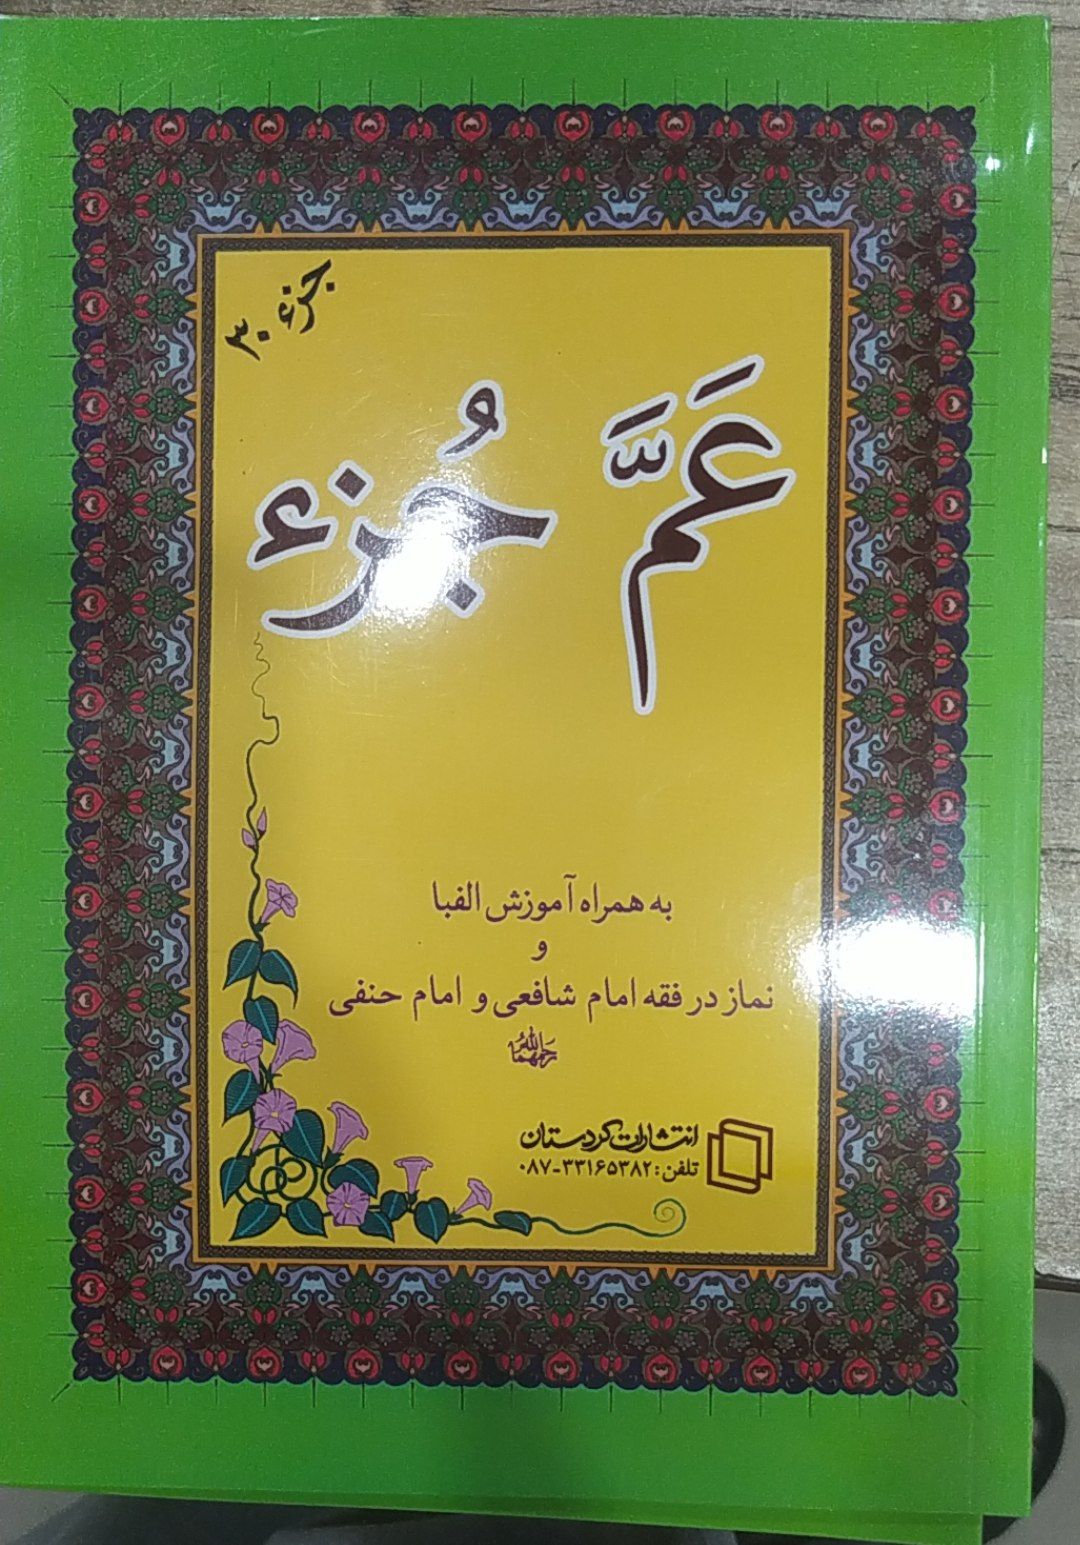 جزء ۳۰
عَمَّ جُزء
به همراه آموزش الفبا
و
نماز در فقه امام شافعی و امام حنفی
رحمهما الله
انتشارات کردستان
تلفن: ۳۳۱۶۵۳۸۲-۰۸۷